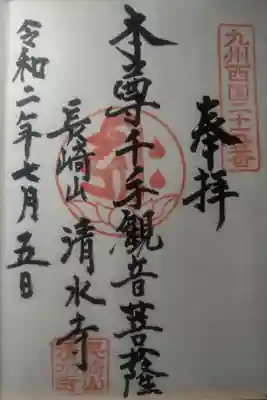 九州西国二十五番
奉拝
本尊千手観音菩薩
長崎山 清水寺
令和二年七月五日